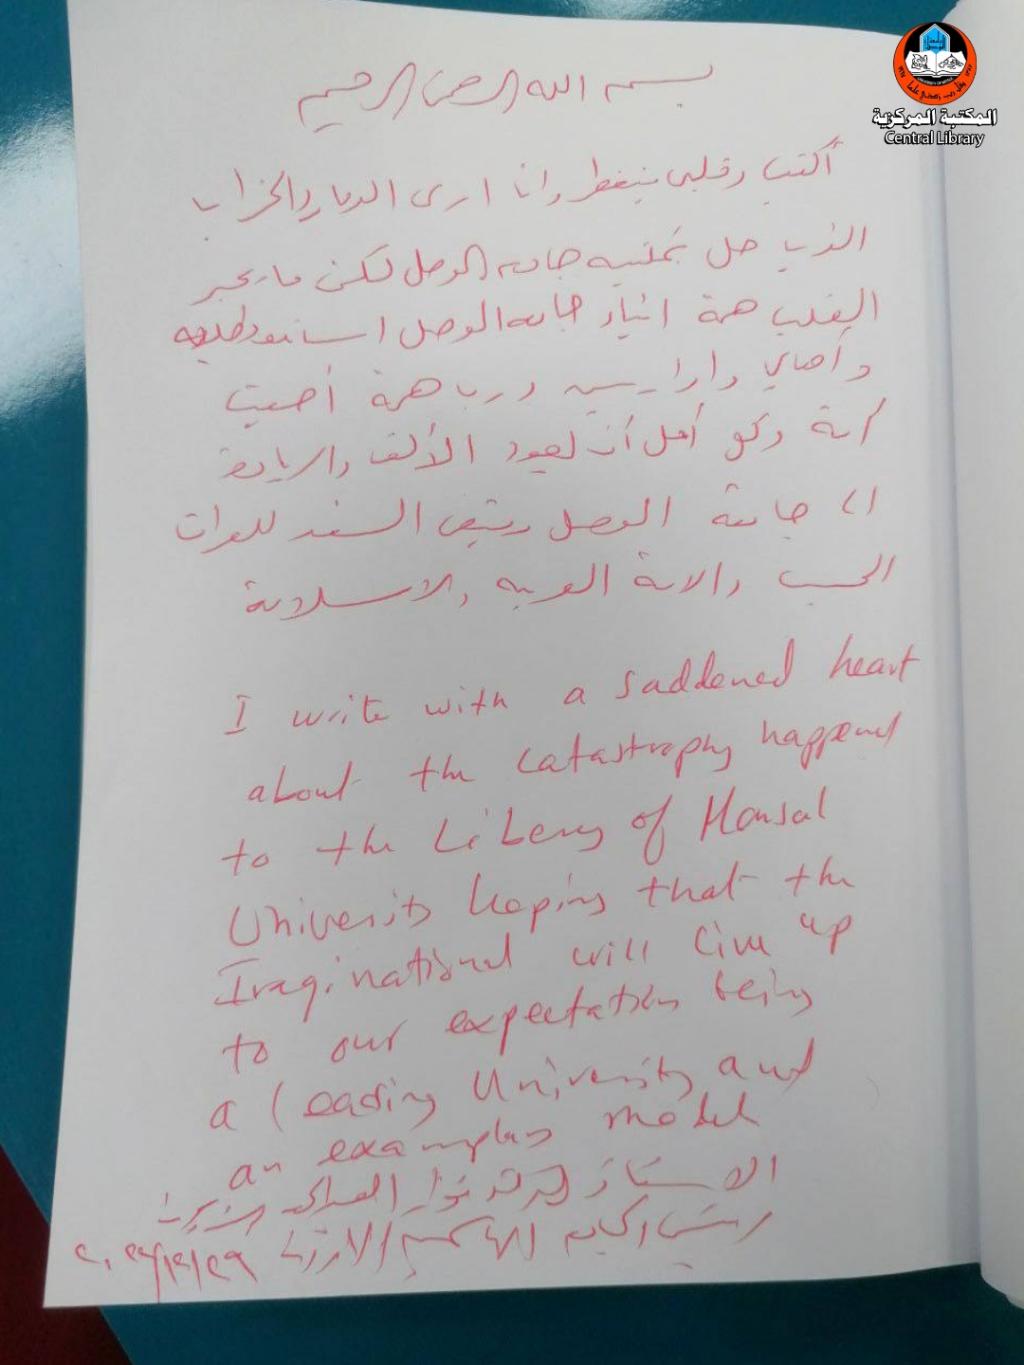 المكتبة المركزية
Central Library
بسم الله الرحمن الرحيم
أكتب وقلبي ينفطر وانا ارى الدمار والخراب
الذي حل بمكتبة جامعة الموصل لكن ما يجبر
القلب همة ابناء جامعة الموصل اساتذة وطلبة
وأهالي واداريين وربا همة أحيت
امة وكلي أمل أن يعود الألق والريادة
الى جامعة الموصل وتبقى السند للعراق
الحبيب والامة العربية والاسلامية
I write with a saddened heart
about the catastrophy happened
to the Libery of Monsal
University hoping that the
Iraqi national will live up
to our expectations being
a leading University and
an examplry model
الاستاذ الدكتور
رئيس الجامعة الهاشمية الاردن